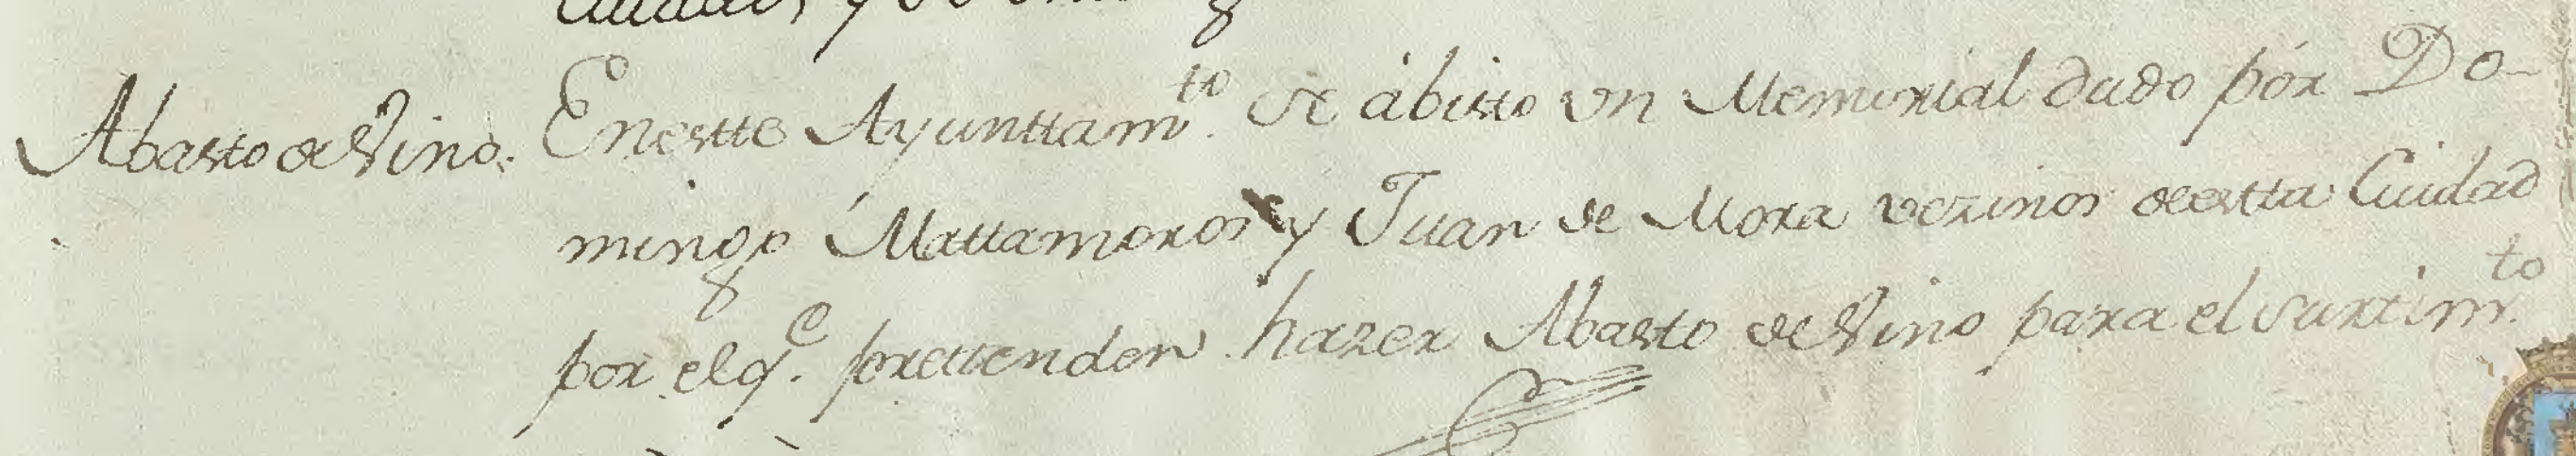 Abasto de Vino.
Enestte Ayunttam.to se ábisto vn Memorial dado pór Do-
mingo Mattamoros y Juan de Mora vezinos deestta Ciudad
por elq.e prettenden hazer Abasto de Vino para el surtim.to